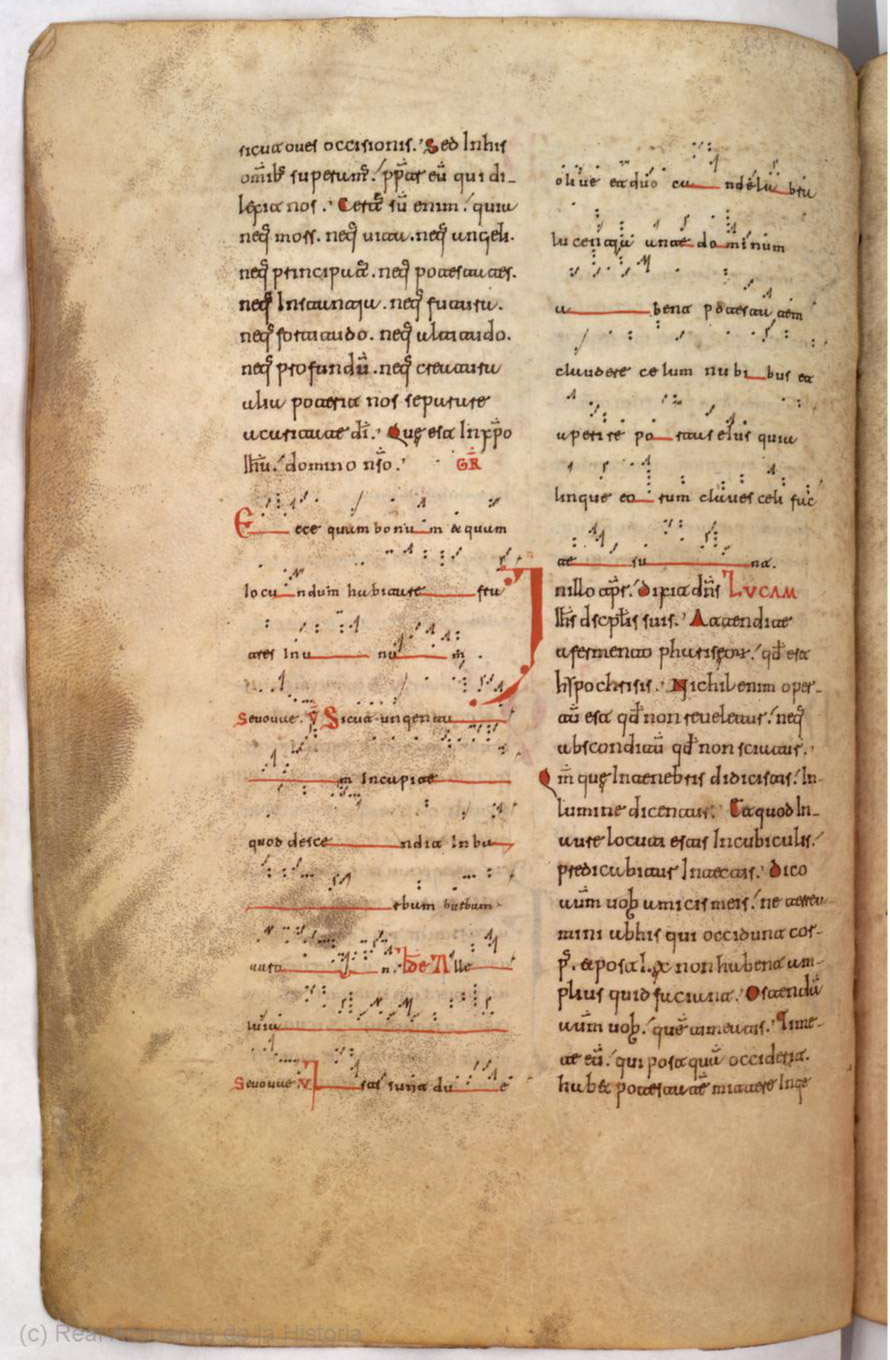 sicut oves occisionis. Sed In his
om̄ib; superam᷒. ꝓpt̄ eū qui di-
lexit nos. Cert᷒ sū enim. quia
neq; mors. neq; vita. neq; angeli.
neq; principat᷒. neq; potestates.
neq; Instantia. neq; futura.
neq; fortitudo. neq; altitudo.
neq; profundū. neq; creatura
alia poterit nos separare
a caritate dī. Quę est In xp̄o
Ih̄u. domino nr̄o. GR̄
Ecce quam bonum & quam
iocundum habitare fra
tres In unum.
Seuouae. V̄ Sicut ungentu
m In capite
quod descendit In ba
rbam barbam
aaron. P̄be Alle
luia
Seuouae V̄ Isti sunt due
olive et duo candelabra
lucentia ante dominum
abent potestatem
claudere celum nubibus et
aperire portas eius quia
lingue eorum claves celi fac
te sunt.
In illo tp̄r. Dixit dn̄s LVCAM
Ih̄s discip̄lis suis. Attendite
a fermento phariseor. qd̄ est
hypochrisis. Nichil enim oper-
tū est qd̄ non reveletur. neq;
absconditū qd̄ non sciatur.
Qm̄ que In tenebris dixistis. In
lumine dicentur. Et quod In
aure locuti estis In cubiculis.
predicabitur In tectis. Dico
autem vob̄ amicis meis. ne terrea
mini ab his qui occidunt cor-
p᷒. & post hec non habent am-
plius quid faciant. Ostendā
autem vob̄. quē timeatis. Time-
te eū. qui postquā occiderit.
habet potestatē mittere In ge
(c) Real Academia de la Historia